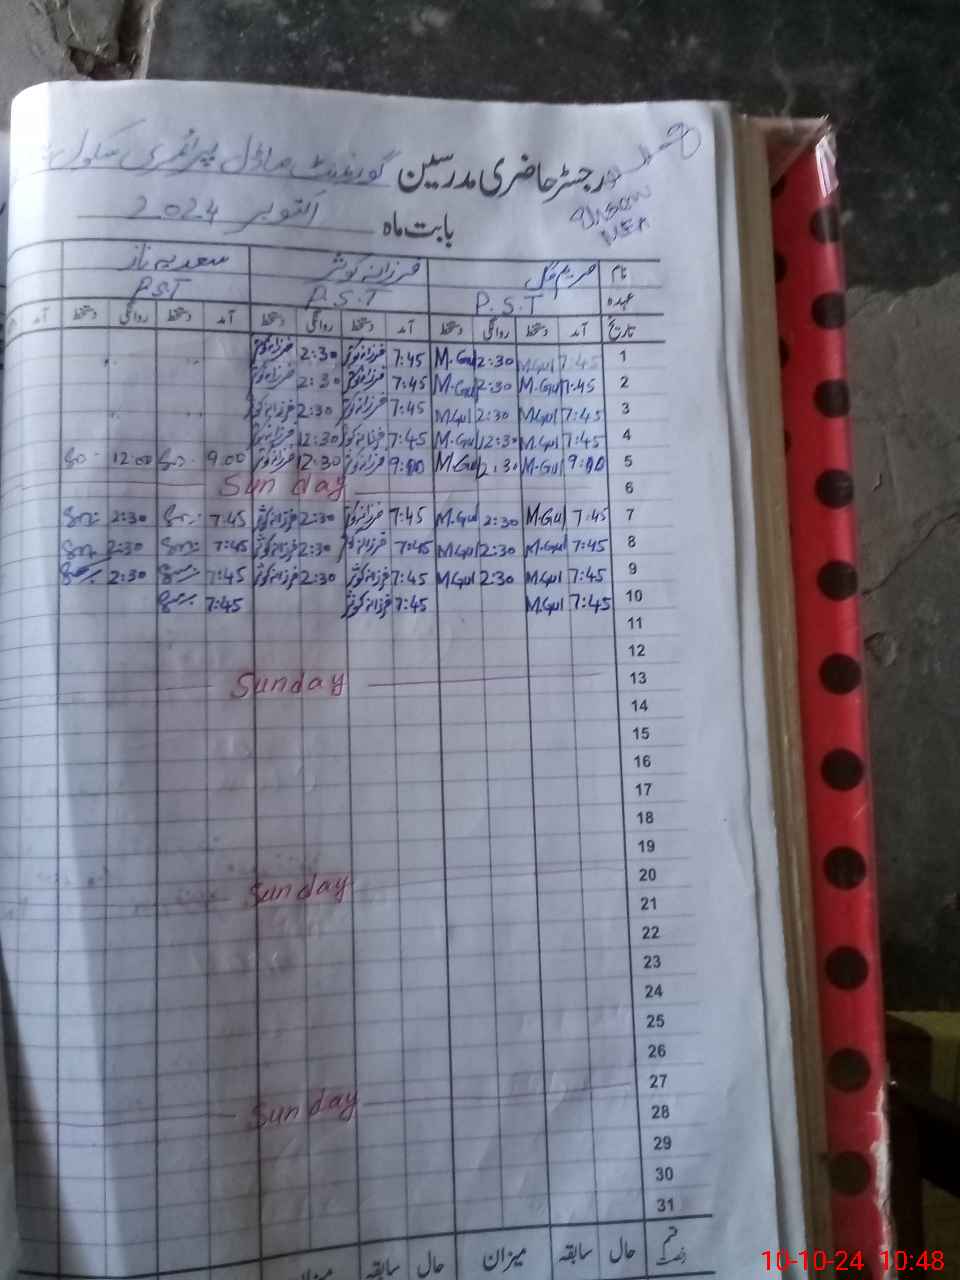 رجسٹر حاضری مدرسین گورنمنٹ ماڈل پرائمری سکول
Ehsan
MEA
بابت ماہ اکتوبر 2024
نام مریم گل فرزانہ کوثر سعدیہ ناز
عہدہ P.S.T P.S.T PST
تاریخ آمد دستخط روانگی دستخط آمد دستخط روانگی دستخط آمد دستخط روانگی دستخط آمد
1 7:45 M.Gul 2:30 M.Gul 7:45 فرزانہ کوثر 2:30 فرزانہ کوثر
2 7:45 M.Gul 2:30 M.Gul 7:45 فرزانہ کوثر 2:30 فرزانہ کوثر
3 7:45 M.Gul 2:30 M.Gul 7:45 فرزانہ کوثر 2:30 فرزانہ کوثر
4 7:45 M.Gul 12:30 M.Gul 7:45 فرزانہ کوثر 12:30 فرزانہ کوثر
5 9:00 M.Gul 2:30 M.Gul 9:00 فرزانہ کوثر 12:30 فرزانہ کوثر 9:00 12:00
6 Sunday
7 7:45 M.Gul 2:30 M.Gul 7:45 فرزانہ کوثر 2:30 فرزانہ کوثر 7:45 2:30
8 7:45 M.Gul 2:30 M.Gul 7:45 فرزانہ کوثر 2:30 فرزانہ کوثر 7:45 2:30
9 7:45 M.Gul 2:30 M.Gul 7:45 فرزانہ کوثر 2:30 فرزانہ کوثر 7:45 2:30
10 7:45 M.Gul 7:45 فرزانہ کوثر 7:45
11
12
13 Sunday
14
15
16
17
18
19
20 Sunday
21
22
23
24
25
26
27 Sunday
28
29
30
31
حال سابقہ میزان حال سابقہ میزان
10-10-24 10:48